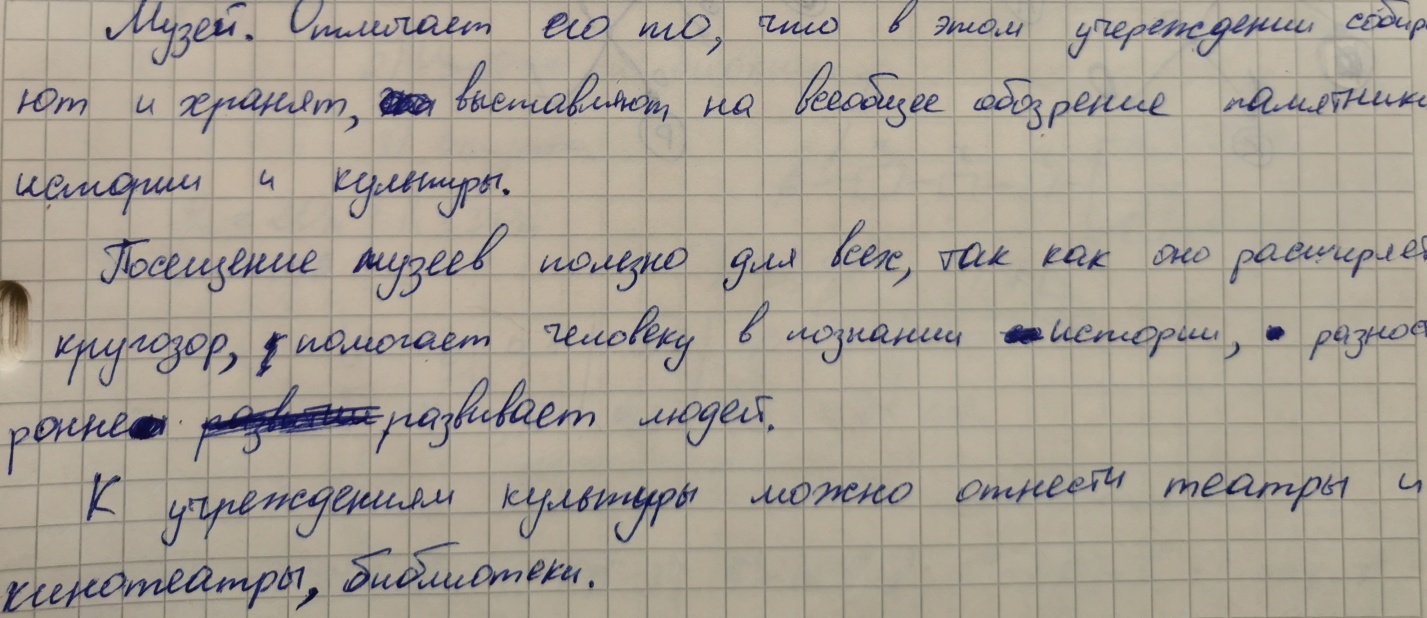 Музей. Отличает его то, что в этом учереждении собира
ют и хранят, выставляют на всеобщее обозрение памятники
истории и культуры.
Посещение музеев полезно для всех, так как оно расширяет
кругозор, помогает человеку в познании истории, разност
ронне развивает людей.
К учреждениям культуры можно отнести театры и
кинотеатры, библиотеки.